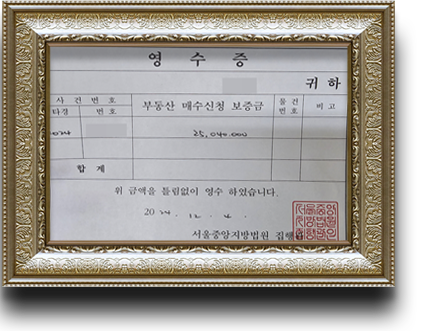 영 수 증
귀 하
사 건 번 호
부동산 매수신청 보증금
물건 번호
비 고
타경
번 호
2024
25,040,000
합 계
위 금액을 틀림없이 영수 하였습니다.
2024. 12. 4.
서울중앙지방법원 집행관